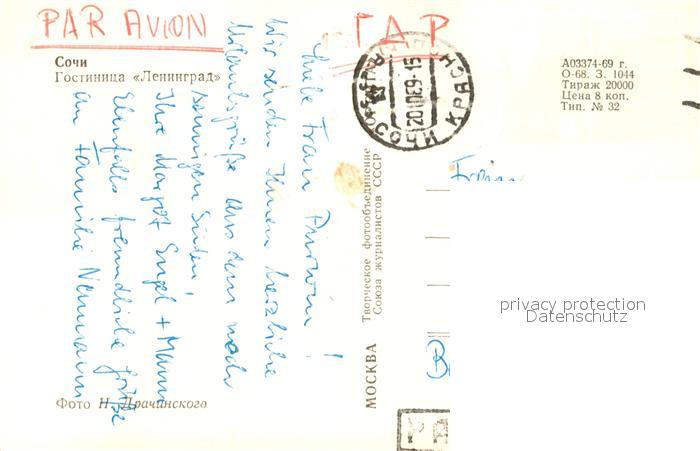 PAR AVION
ГДР
Сочи
Гостиница «Ленинград»
СОЧИ КРАСНО
201069-15
А03374-69 г.
О-68. З. 1044
Тираж 20000
Цена 8 коп.
Тип. № 32
Liebe Frau
Wir senden Ihnen herzliche
Urlaubsgrüße aus dem noch
sonnigen Süden
Ihre Margot Engel + Mann
Ebenfalls freundliche Grüße
an Familie Neumann
Фото Н. Драчинского
МОСКВА
Творческое фотообъединение
Союза журналистов СССР
privacy protection
Datenschutz